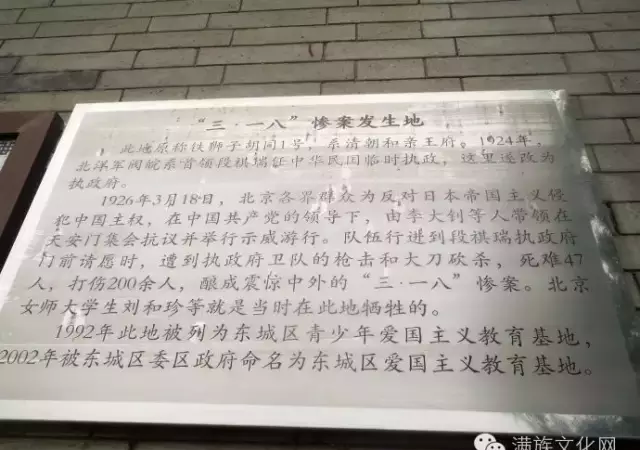 “三·一八”惨案发生地
此地原称铁狮子胡同1号，系清朝和亲王府。1924年，
北洋军阀皖系首领段祺瑞任中华民国临时执政，这里遂改为
执政府。
1926年3月18日，北京各界群众为反对日本帝国主义侵
犯中国主权，在中国共产党的领导下，由李大钊等人带领在
天安门集会抗议并举行示威游行。队伍行进到段祺瑞执政府
门前请愿时，遭到执政府卫队的枪击和大刀砍杀，死难47
人，打伤200余人，酿成震惊中外的“三·一八”惨案。北京
女师大学生刘和珍等就是当时在此地牺牲的。
1992年此地被列为东城区青少年爱国主义教育基地，
2002年被东城区委区政府命名为东城区爱国主义教育基地。
满族文化网